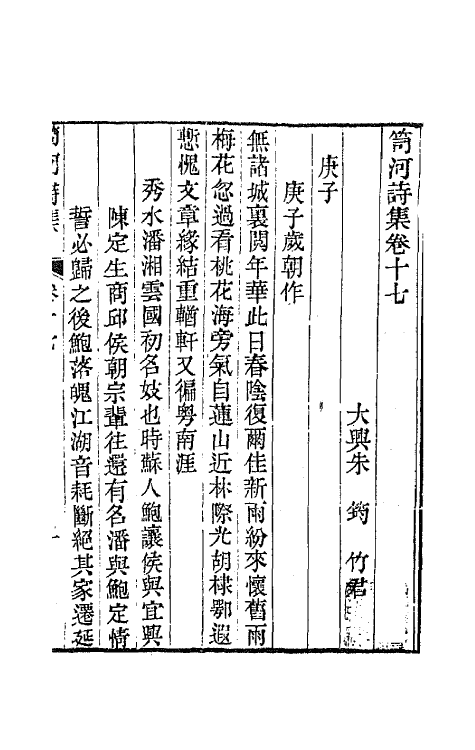 笥河詩集卷十七
大興朱 筠 竹君
庚子
庚子歲朝作
無諸城裏閱年華此日春陰復爾佳新雨紛來懷舊雨
梅花忽過看桃花海旁氣自蓮山近林際光胡棣鄂遐
慙愧文章緣結重輶軒又徧粵南涯
秀水潘湘雲國初名妓也時蘇人鮑讓侯與宜興
陳定生商邱侯朝宗輩往還有名潘與鮑定情
誓必歸之後鮑落魄江湖音耗斷絕其家遷延
笥河詩集 卷十七 一